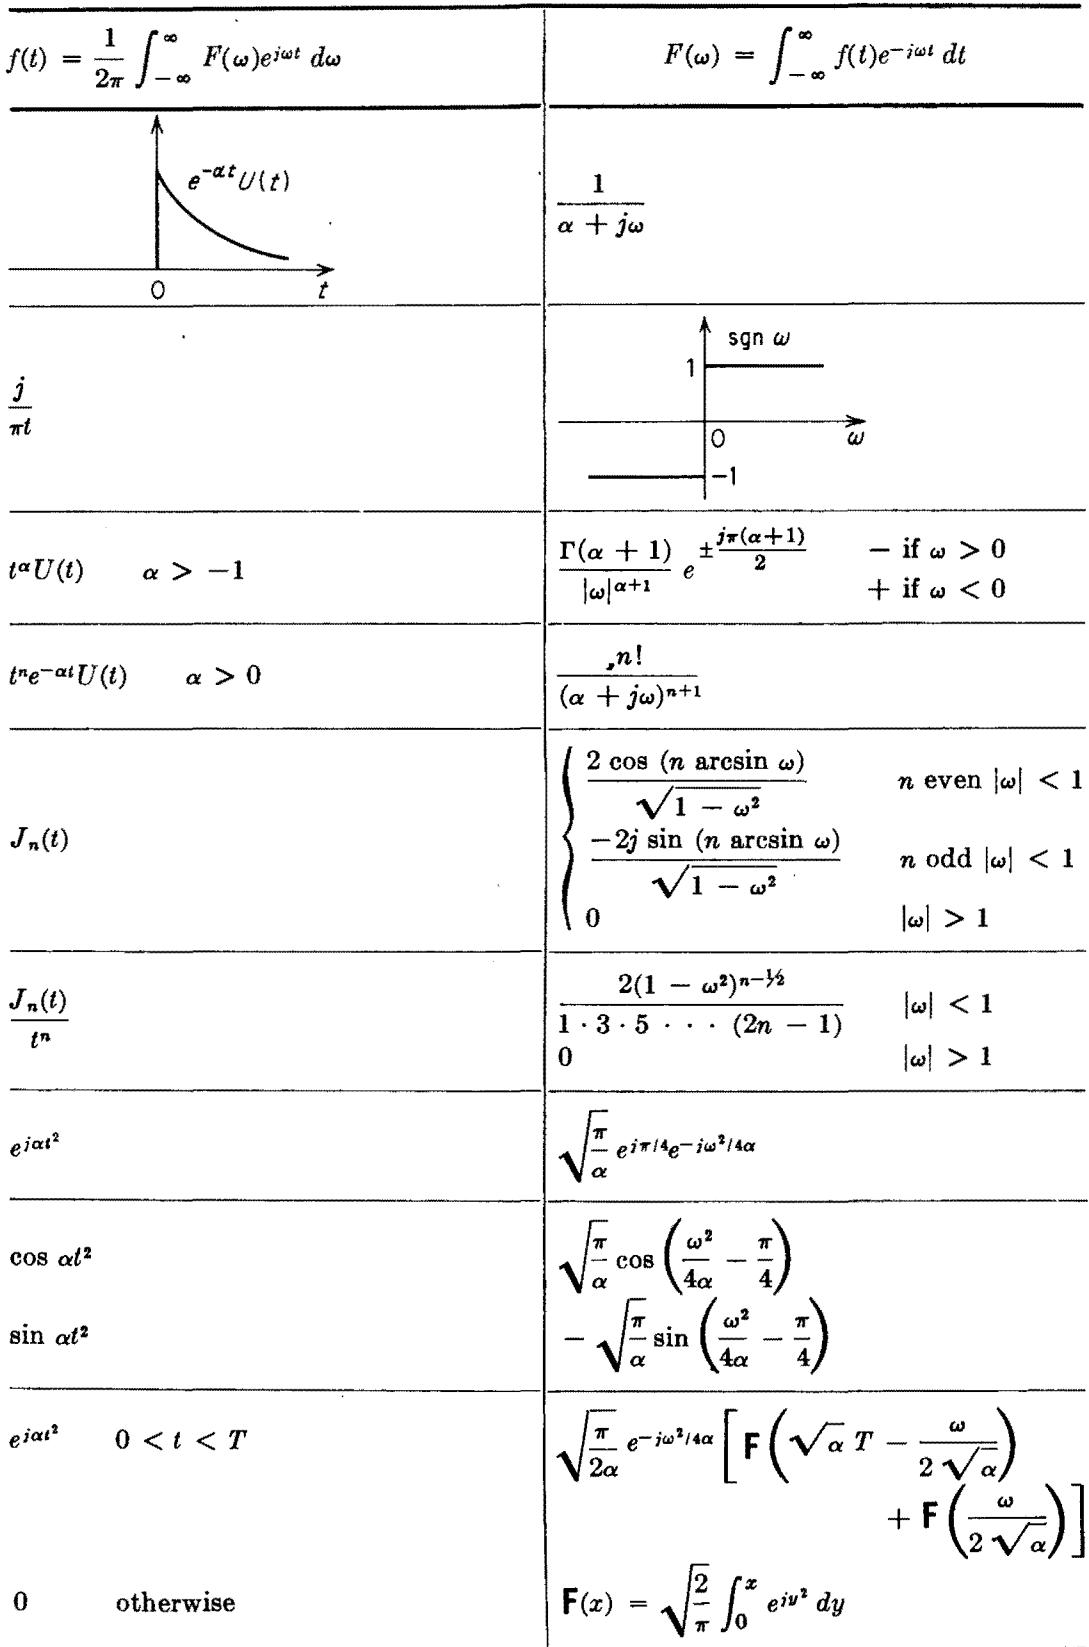 f(t) = \frac{1}{2\pi} \int_{-\infty}^{\infty} F(ω)e^{jωt} dω    F(ω) = \int_{-\infty}^{\infty} f(t)e^{-jωt} dt
e^{-αt}U(t)
0 t
\frac{1}{α + jω}
\frac{j}{πt}
sgn ω
1
0 ω
-1
t^αU(t)    α > -1    \frac{Γ(α + 1)}{|ω|^{α+1}} e^{±\frac{jπ(α+1)}{2}}    - if ω > 0
+ if ω < 0
t^n e^{-αt}U(t)    α > 0    \frac{n!}{(α + jω)^{n+1}}
J_n(t)
\frac{2 cos (n arcsin ω)}{\sqrt{1 - ω^2}}    n even |ω| < 1
\frac{-2j sin (n arcsin ω)}{\sqrt{1 - ω^2}}    n odd |ω| < 1
0    |ω| > 1
\frac{J_n(t)}{t^n}    \frac{2(1 - ω^2)^{n-½}}{1 · 3 · 5 · · · (2n - 1)}    |ω| < 1
0    |ω| > 1
e^{jαt^2}    \sqrt{\frac{π}{α}} e^{jπ/4}e^{-jω^2/4α}
cos αt^2    \sqrt{\frac{π}{α}} cos (\frac{ω^2}{4α} - \frac{π}{4})
sin αt^2    - \sqrt{\frac{π}{α}} sin (\frac{ω^2}{4α} - \frac{π}{4})
e^{jαt^2}    0 < t < T    \sqrt{\frac{π}{2α}} e^{-jω^2/4α} [ F(\sqrt{α} T - \frac{ω}{2\sqrt{α}})
+ F(\frac{ω}{2\sqrt{α}}) ]
0    otherwise    F(x) = \sqrt{\frac{2}{π}} \int_0^x e^{jy^2} dy